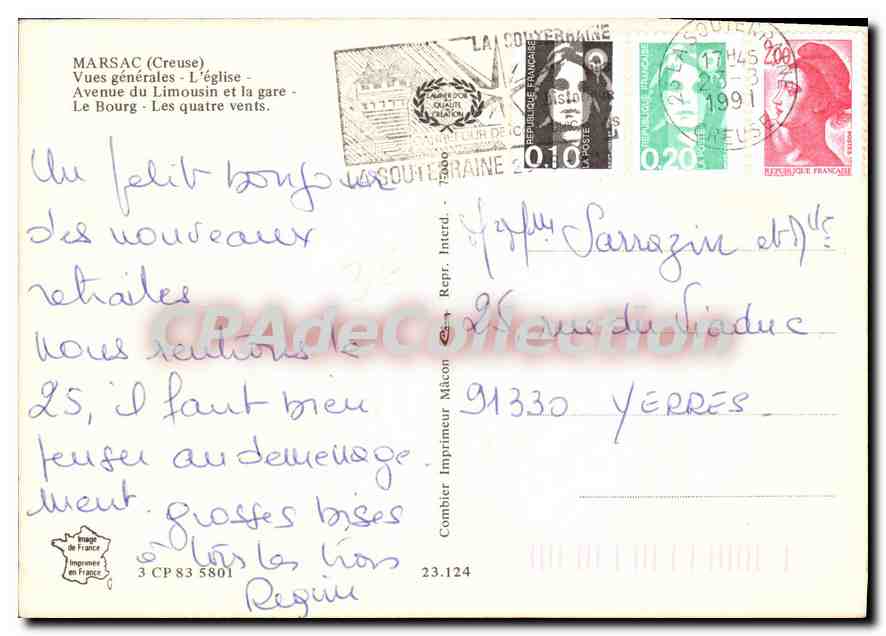 MARSAC (Creuse)
Vues générales - L'église -
Avenue du Limousin et la gare -
Le Bourg - Les quatre vents.
LA SOUTERRAINE
LAURIER D'OR
DE LA
QUALITE
CREATION
LA SOUTERRAINE 23
REPUBLIQUE FRANÇAISE
0,10
LA POSTE
REPUBLIQUE FRANÇAISE
0,20
LA POSTE
2,00
POSTES
REPUBLIQUE FRANÇAISE
23 LA SOUTERRAINE
17H45
23-3
1991
CREUSE
Un petit bonjour
des nouveaux
retraites
nous rentrons le
25, il faut bien
penser au demenage
ment. grosses bises
à tous les trois
Regine
Mr Mme Sarrazin et Mlle
25 rue du Viaduc
91330 YERRES
Combier Imprimeur Mâcon - Repr. Interd. - 71000
CPAdeCollection
Image
de France
Imprimée
en France
3 CP 83 5801
23.124